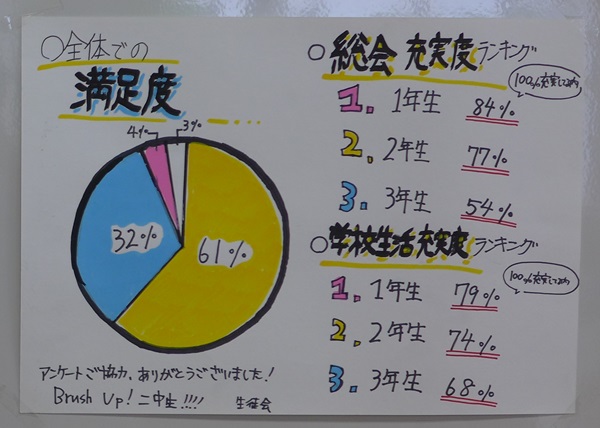 ○全体での
満足度
4%
3%
32%
61%
アンケートご協力、ありがとうございました!
Brush Up! 二中生!!!!
生徒会
○総会 充実度ランキング
1. 1年生 84%
2. 2年生 77%
3. 3年生 54%
○学校生活充実度ランキング
1. 1年生 79%
2. 2年生 74%
3. 3年生 68%